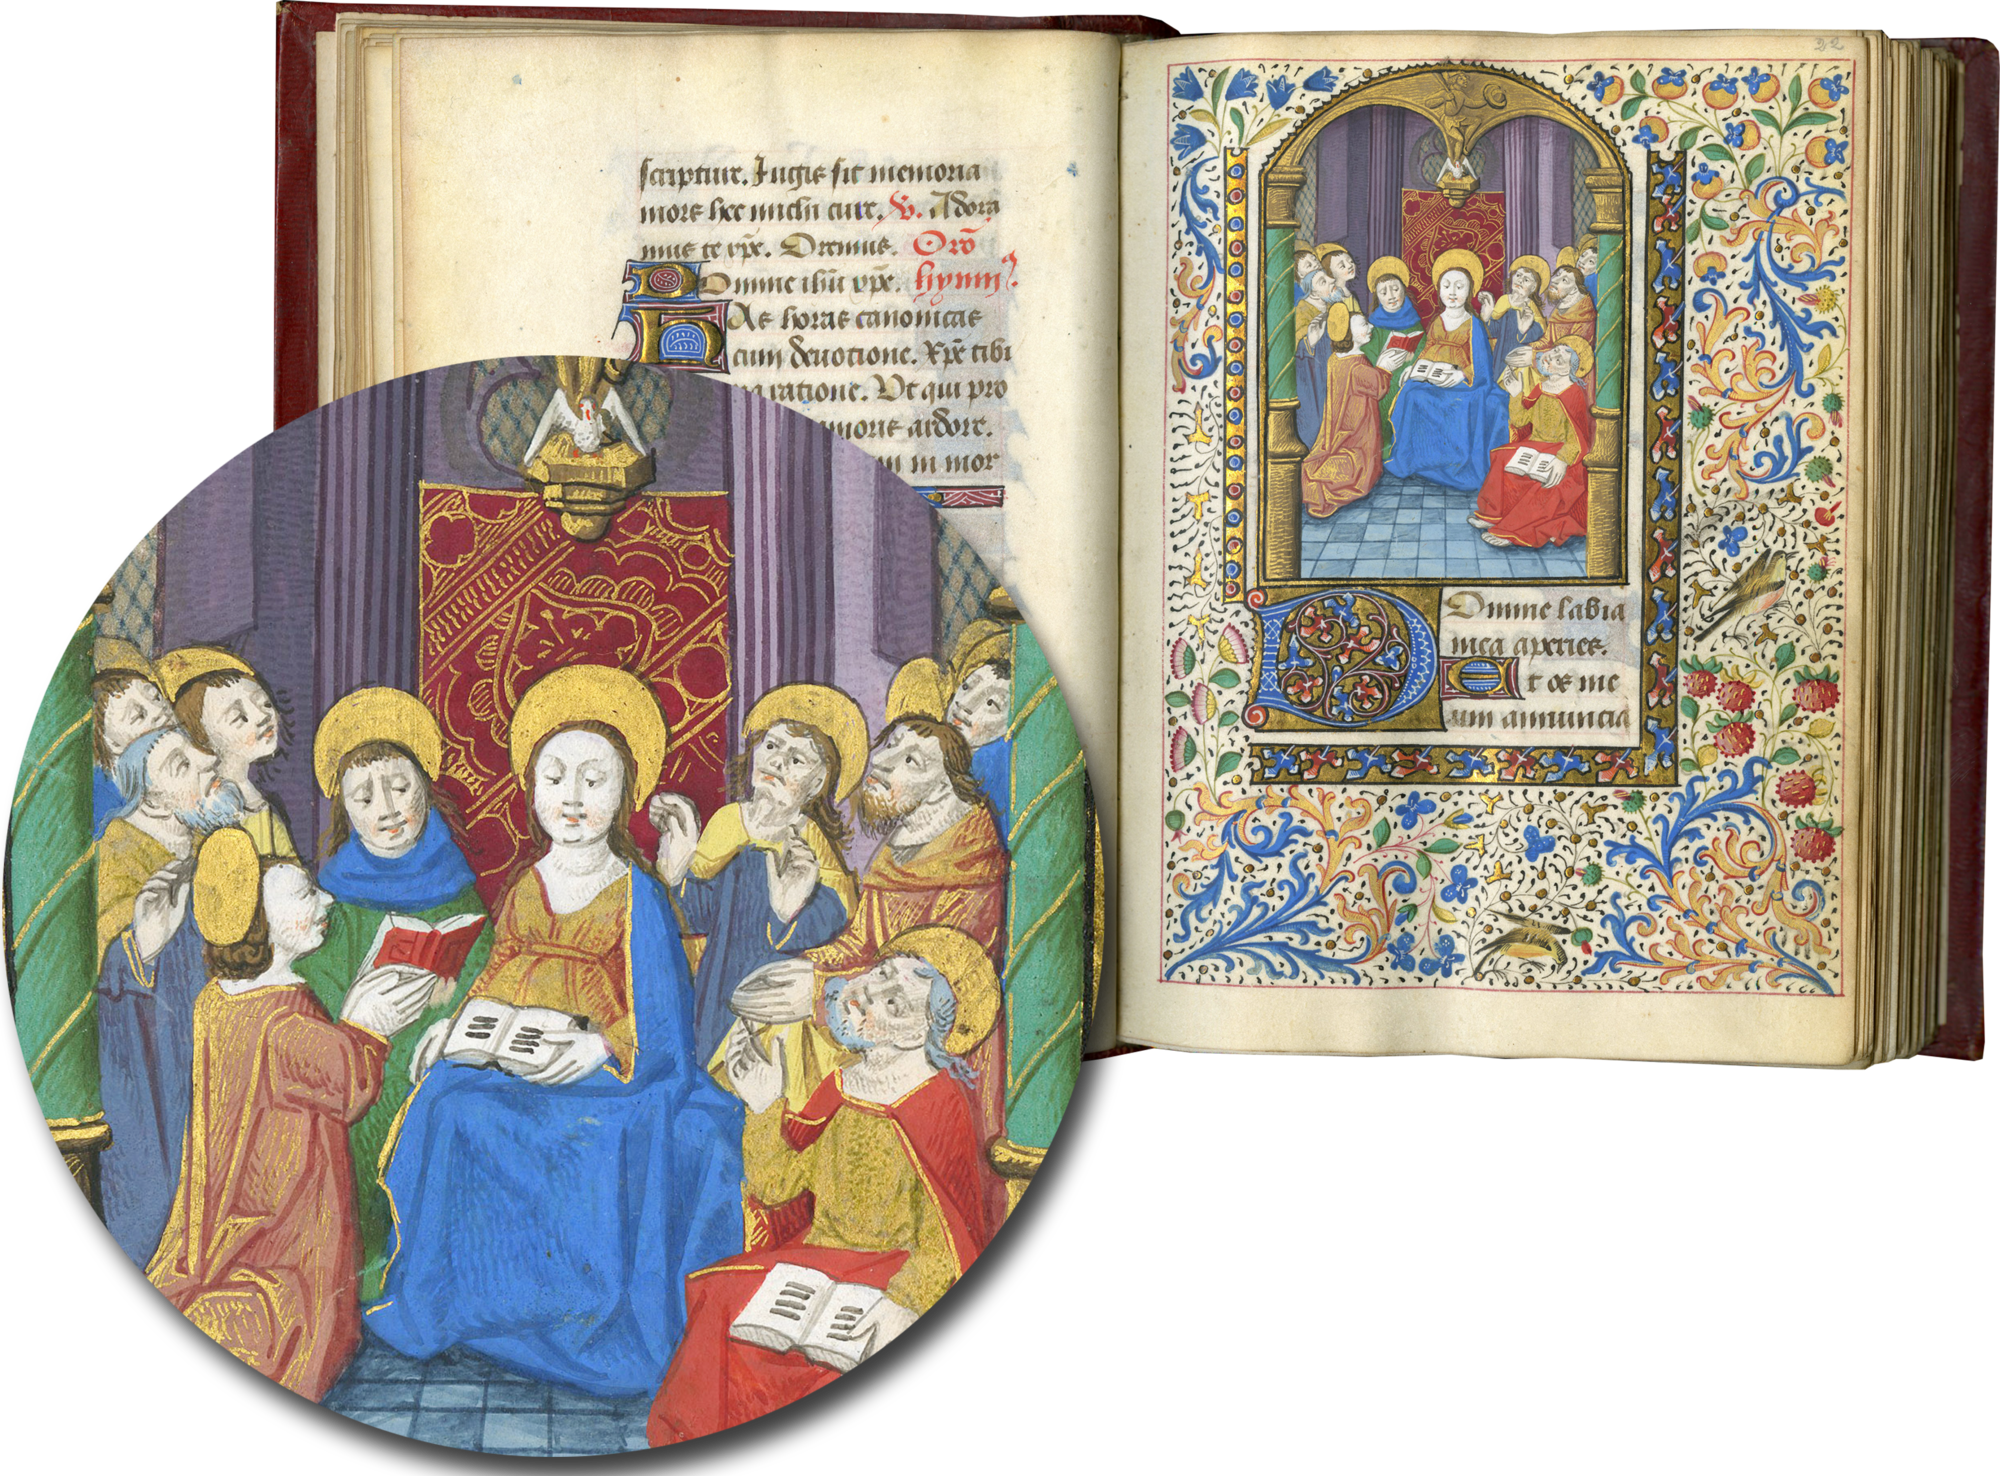 scriptur. Jugis sit memoria
mors hec michi cure. V. Adora
mus te xpe. Oremus. Oro
Domine ihu xpe. hymn9.
Has horas canonicas
cum deuotione. Xpe tibi
ratione. Vt qui pro
moris ardore.
in mor
22
Domine labia
mea aperies.
Et os me
um annuncia